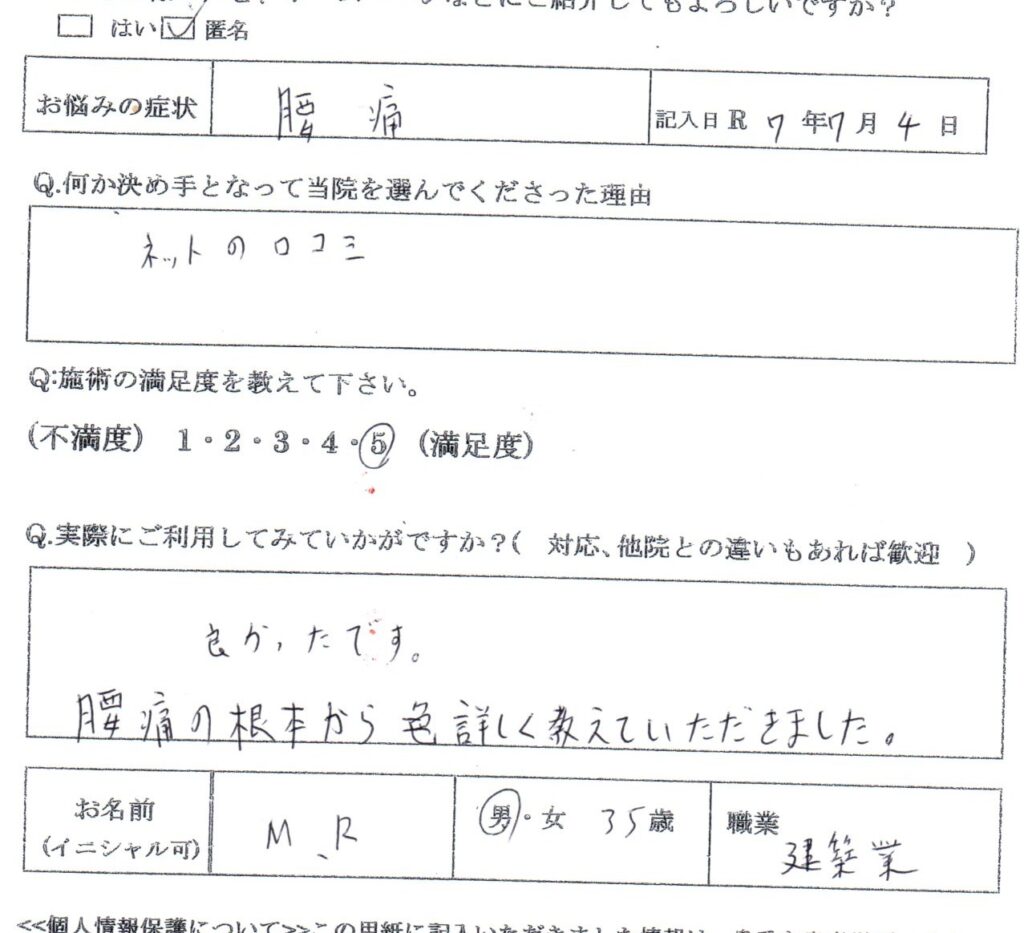 などにご紹介してもよろしいですか？
□ はい ☑ 匿名
お悩みの症状 腰痛 記入日 R 7 年 7 月 4 日
Q.何か決め手となって当院を選んでくださった理由
ネットの口コミ
Q:施術の満足度を教えて下さい。
(不満度) 1・2・3・4・5 (満足度)
Q.実際にご利用してみていかがですか？( 対応、他院との違いもあれば歓迎 )
良かったです。
腰痛の根本から色詳しく教えていただきました。
お名前 M.R 男・女 35歳 職業
(イニシャル可) 建築業
<<個人情報保護について>>この用紙に記入いただきました情報は、